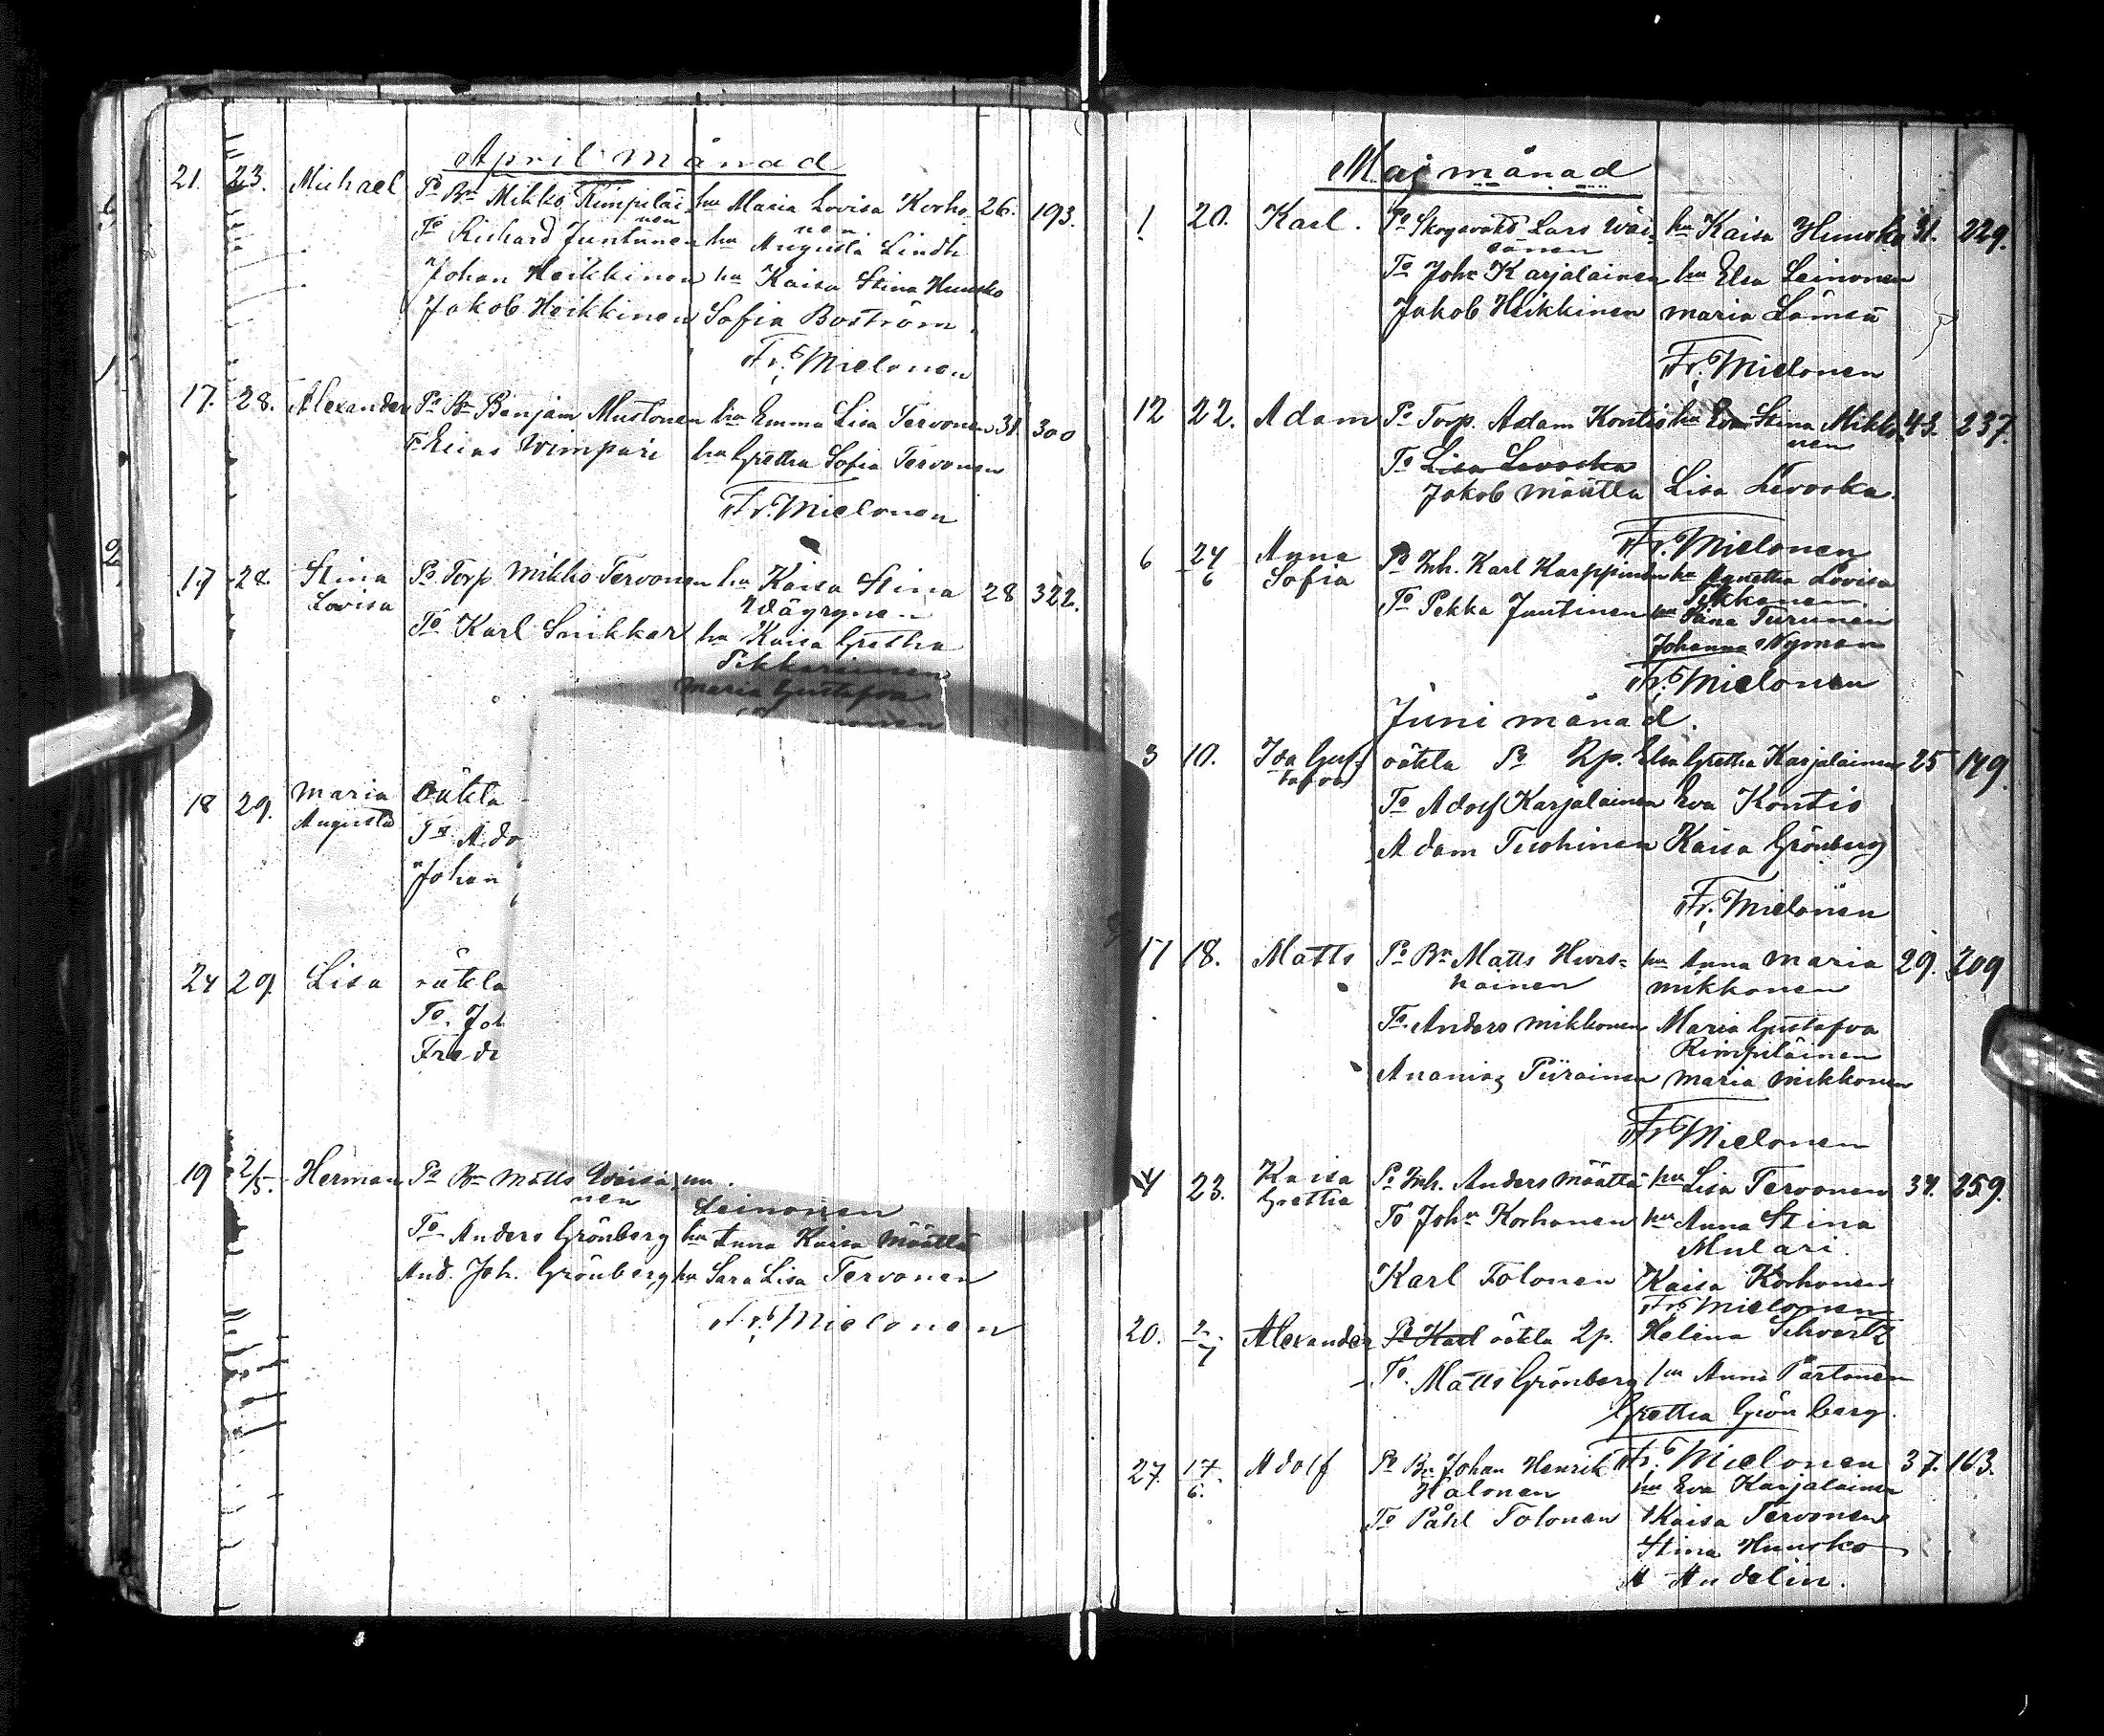 April månad
21. 23. Michael Po Bn Mikko Rimpiläi- hu Maria Lovisa Korho- 26. 193.
nen nen
To Richard Juntunen hu Augusta Lindh
Johan Heikkinen hu Kaisa Stina Huusko
Jakob Heikkinen Sofia Boström
Fr. Mielonen
17. 28. Alexander Po Bn Benjam Mustonen hu Emma Lisa Tervonen 31. 300
To Elias Wimpari hu Gretha Sofia Tervonen
Fr. Mielonen
17 28. Stina Po Torp Mikko Tervonen hu Kaisa Stina 28 322.
Lovisa Wäyrynen
To Karl Snikkar hu Kaisa Gretha
Pikkarainen
Maria Gustafva
nonen
18 29. Maria Oäkta
Augusta To Ado
Johan
24 29. Lisa oäkta
To. Joh
Fredr
19 2/5. Herman Po Bn Matts Wäisä- hu
nen Leinonen
To Anders Grönberg hu Anna Kaisa Määttä
And. Joh. Grönberg hu Sara Lisa Tervonen
Fr. Mielonen
Maj månad
1 20. Karl. Po Skogsvakt Lars Wäi- hu Kaisa Huusko 31. 229.
sänen
To John Karjalainen hu Elsa Leinonen
Jakob Heikkinen Maria Lämsä
Fr. Mielonen
12 22. Adam Po Torp. Adam Kontio hu Eva Stina Mikko- 43. 237.
nen
To Lisa Levoska
Jakob Määttä Lisa Levoska.
Fr. Mielonen
6 24/6 Anna Po Inh. Karl Karppinen hu Agnetha Lovisa
Sofia Pikkanen
To Pekka Juutinen hu Stina Turunen
Johanna Nyman
Fr. Mielonen
Juni månad.
3 10. Ida Gus- oäkta Po Qp. Elsa Gretha Karjalainen 25 149.
tafva
To Adolf Karjalainen Eva Kontio
Adam Tuohinen Kaisa Grönberg
Fr. Mielonen
17 18. Matts Po Bn Matts Hurs- hu Anna Maria 29. 209
kainen Mikkonen
To. Anders Mikkonen Maria Gustafva
Rimpiläinen
Ananias Piirainen Maria Mikkonen
Fr. Mielonen
14 23. Kaisa Po Inh. Anders Määttä hu Lisa Tervonen 34. 259.
Gretha
To John Korhonen hu Anna Stina
Mulari.
Karl Tolonen Kaisa Korhonen
Fr. Mielonen
20. 2/7 Alexander Po Karl oäkta Qp. Helena Schvartz
To. Matts Grönberg hu Anna Partanen
Gretha Grönberg.
Fr. Mielonen
27. 17/6. Adolf Po Bn Johan Henrik hu Eva Karjalainen 37. 163.
Halonen
To Påhl Tolonen Kaisa Tervonen
Stina Huusko
A Andelin.